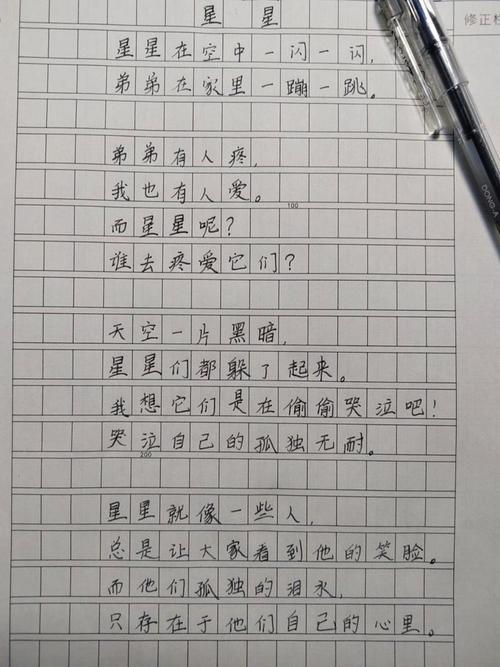 星 星
修正
星星在空中一闪一闪,
弟弟在家里一蹦一跳。
弟弟有人疼,
我也有人爱。
100
而星星呢?
谁去疼爱它们?
天空一片黑暗,
星星们都躲了起来。
我想它们是在偷偷哭泣吧!
哭泣自己的孤独无耐。
200
星星就像一些人,
总是让大家看到他的笑脸。
而他们孤独的泪水,
只存在于他们自己的心里。